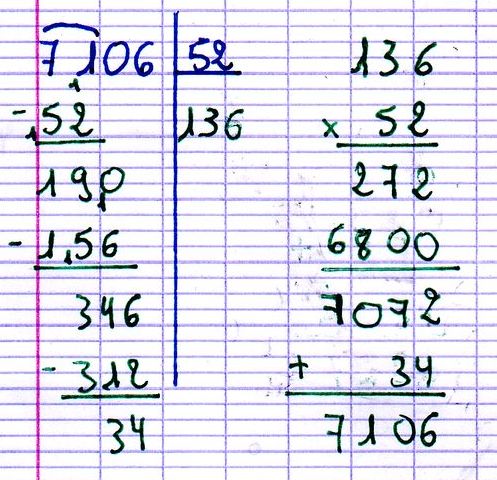 7106 52
- 52 136
190
- 156
346
- 312
34
136
x 52
272
6800
7072
+ 34
7106